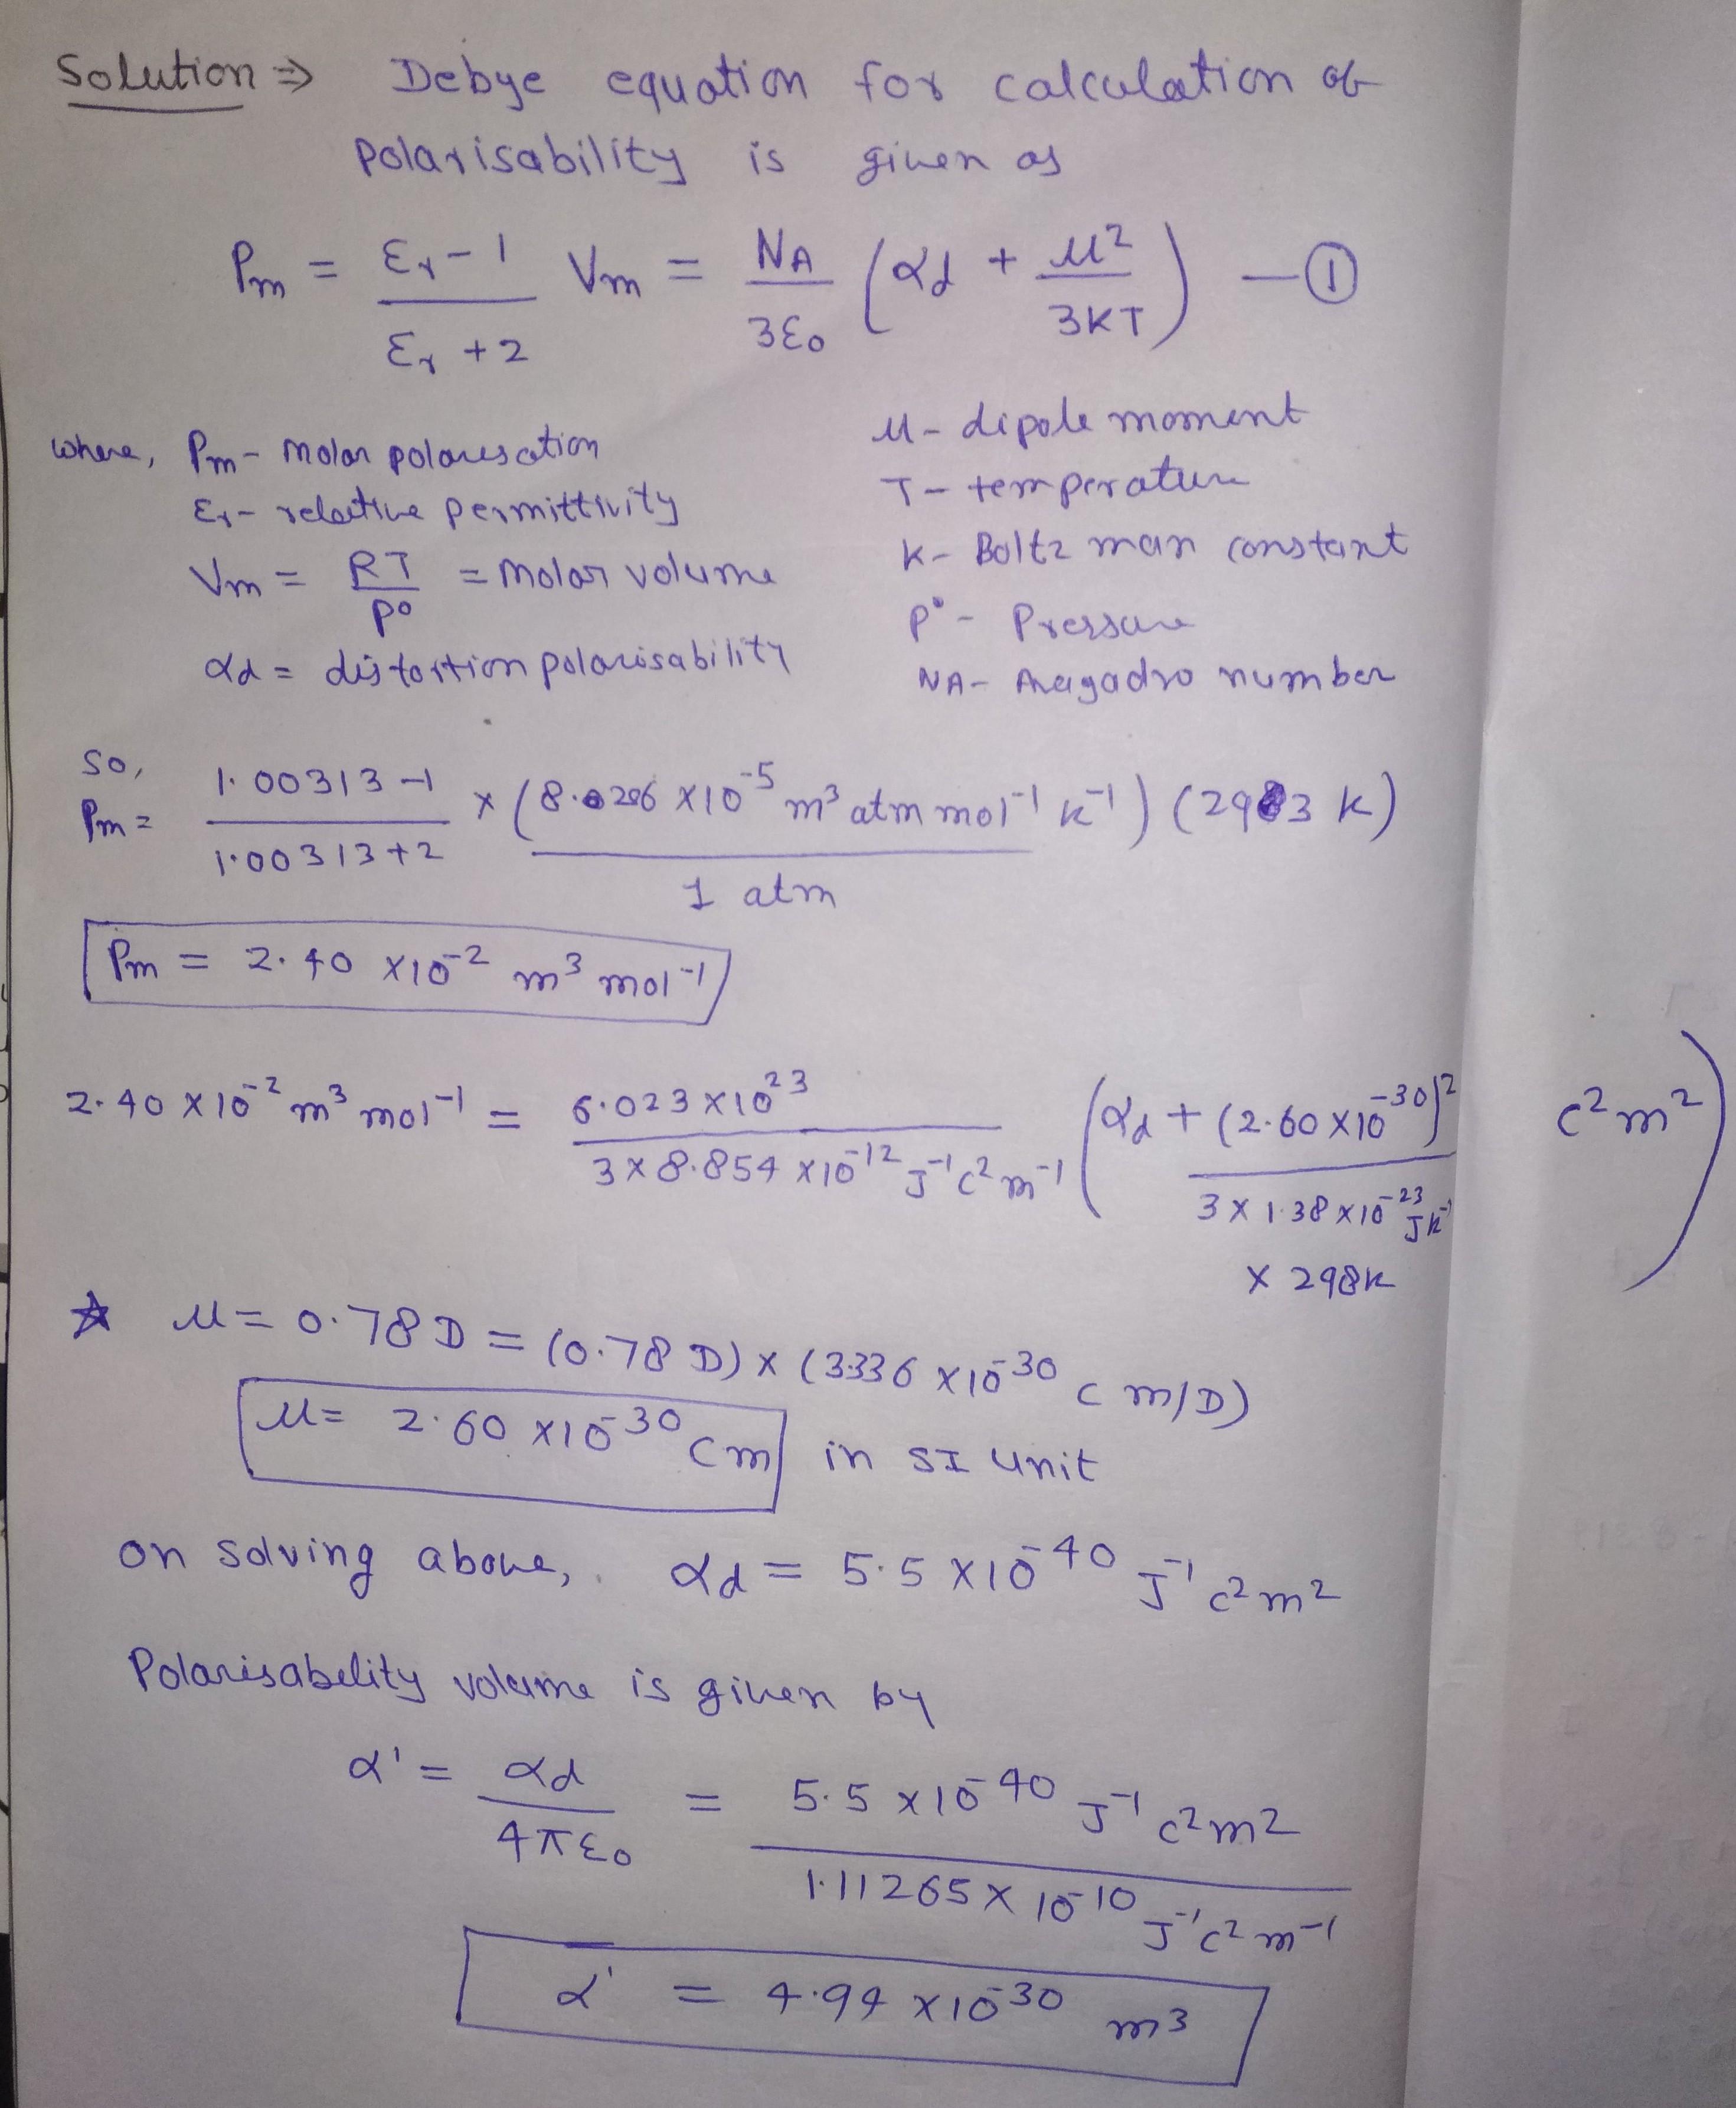 Solution ⇒ Debye equation for calculation of
polarisability is given as
Pm = (εr - 1)/(εr + 2) Vm = NA/3ε0 (αd + μ²/3KT) — ①
where, Pm - molar polaresation
εr - relative permittivity
Vm = RT/P° = molar volume
αd = distortion polarisability
μ - dipole moment
T - temperature
K - Boltz man constant
P° - Pressure
NA - Avagadro number
so,
Pm = (1.00313 - 1)/(1.00313 + 2) × (8.0206 × 10⁻⁵ m³ atm mol⁻¹ K⁻¹) (298 K)/1 atm
Pm = 2.40 × 10⁻² m³ mol⁻¹
2.40 × 10⁻² m³ mol⁻¹ = 6.023 × 10²³/(3 × 8.854 × 10⁻¹² J⁻¹ C² m⁻¹) (αd + (2.60 × 10⁻³⁰)² C² m²/(3 × 1.38 × 10⁻²³ J K⁻¹ × 298K))
☆ μ = 0.78 D = (0.78 D) × (3.336 × 10⁻³⁰ C m/D)
μ = 2.60 × 10⁻³⁰ C m in SI unit
on solving above, αd = 5.5 × 10⁻⁴⁰ J⁻¹ C² m²
Polarisability volume is given by
α' = αd/4πε0 = 5.5 × 10⁻⁴⁰ J⁻¹ C² m²/1.11265 × 10⁻¹⁰ J⁻¹ C² m⁻¹
α' = 4.94 × 10⁻³⁰ m³